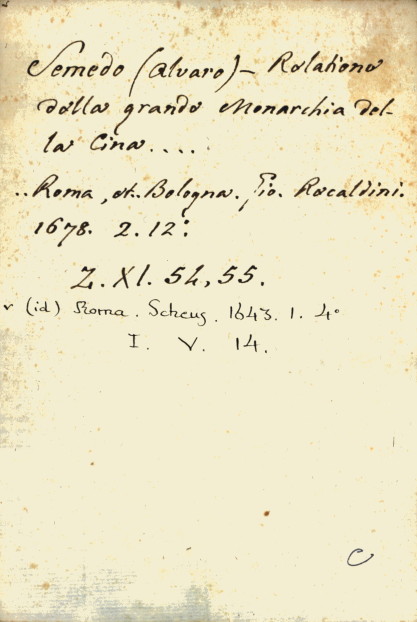 Semedo (Alvaro) – Relatione
della grande Monarchia del-
la Cina....
.. Roma, et. Bologna. Gio. Recaldini.
1678. 2. 12º.
Z. XI. 54, 55.
v (id) Roma. Scheus. 1643. 1. 4º
I. V. 14.
C